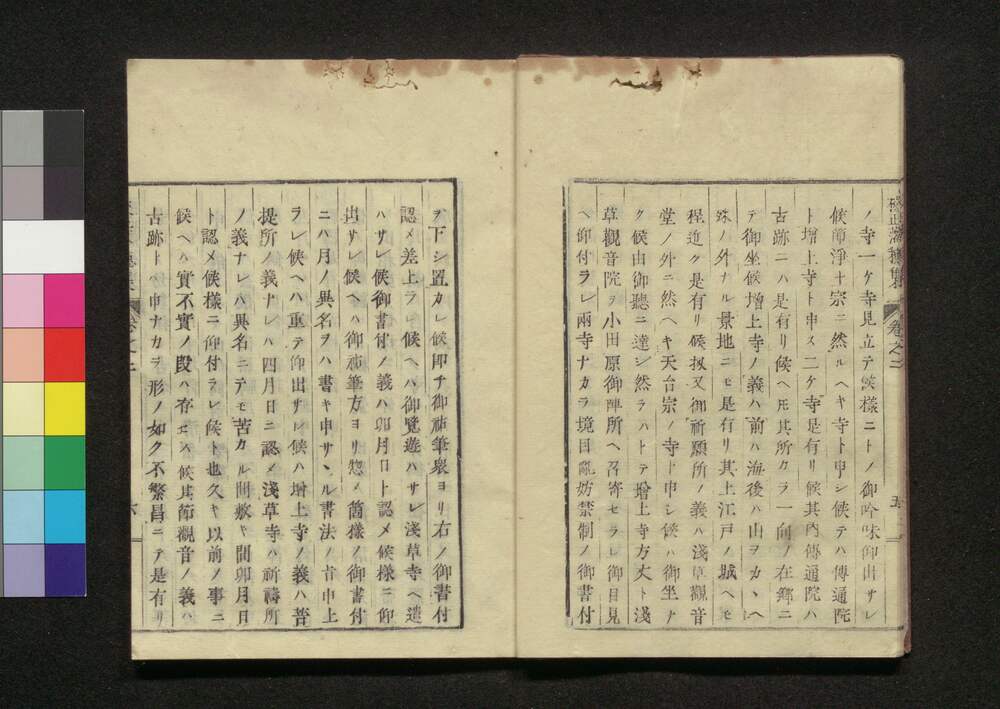 ノ寺一ケ寺見立テ候樣ニトノ御吟味仰出サレ
候節淨土宗ニ然ルヘキ寺ト申シ候テハ傳通院
ト增上寺ト申ス二ケ寺是有リ候其內傳通院ハ
古跡ニハ是有リ候ヘ𪜈其所カラ一向ノ在鄕ニ
テ御坐候增上寺ノ義ハ前ハ海後ハ山ヲカヽヘ
殊ノ外ナル景地ニモ是有リ其上江戸ノ城ヘモ
程近ク是有リ候扨又御祈願所ノ義ハ淺草觀音
堂ノ外ニ然ヘキ天台宗ノ寺ト申シ候ハ御坐ナ
ク候由御聽ニ達シ然ラハトテ增上寺方丈ト淺
草觀音院ヲ小田原御陣所ヘ召寄セラレ御目見
ヘ仰付ラレ兩寺ナカラ境目亂妨禁制ノ御書付
卷之二
五
ヲ下シ置カレ候即チ御祐筆衆ヨリ右ノ御書付
認メ差上ラレ候ヘハ御覽遊ハサレ淺草寺ヘ遣
ハサレ候御書付ノ義ハ卯月日ト認メ候樣ニ仰
出サレ候ヘハ御祐筆方ヨリ惣〆箇樣ノ御書付
ニハ月ノ異名ヲハ書キ申サヽル書法ノ旨申上
ラレ候ヘハ重テ仰出サレ候ハ增上寺ノ義ハ菩
提所ノ義ナレハ四月日ニ認メ淺草寺ハ祈禱所
ノ義ナレハ異名ニテモ苦カル間敷キ間卯月日
ト認メ候樣ニ仰付ラレ候ト也久キ以前ノ事ニ
候ヘハ實不實ノ段ハ存セス候其節觀音ノ義ハ
古跡トハ申ナカラ形ノ如ク不繁昌ニテ是有リ